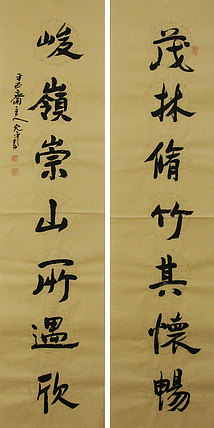 茂林脩竹其懷暢
峻嶺崇山所遇欣
齋主人